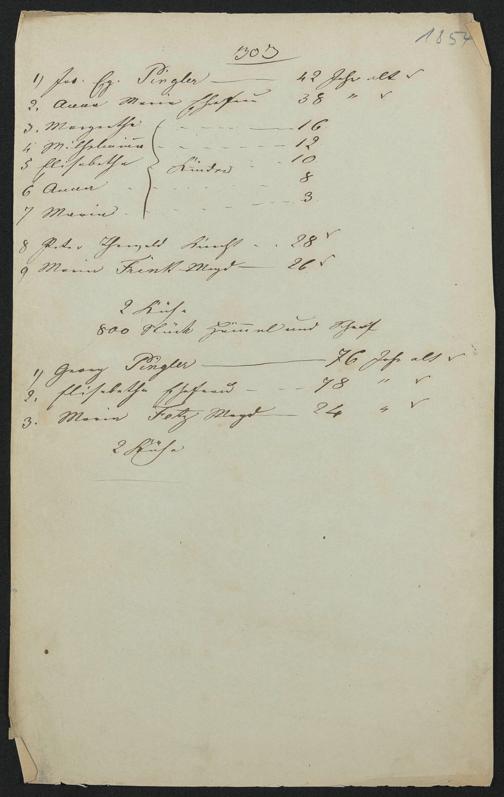 1854
303
1) Joh. Gg. Pingler — 42 Jahr alt
2. Anna Maria Ehefrau 38 "
3. Margretha — 16
4 Wilhelmina 12
5 Elisabetha Kinder 10
6 Anna 8
7 Maria 3
8 Peter Knecht 28
9 Maria Frenk Magd — 26
2 Kühe
800 Stück Hämmel und Schaf
1) Georg Pingler — 76 Jahr alt
2. Elisabetha Ehefrau 78 "
3. Maria Fotz Magd — 24 "
2 Kühe